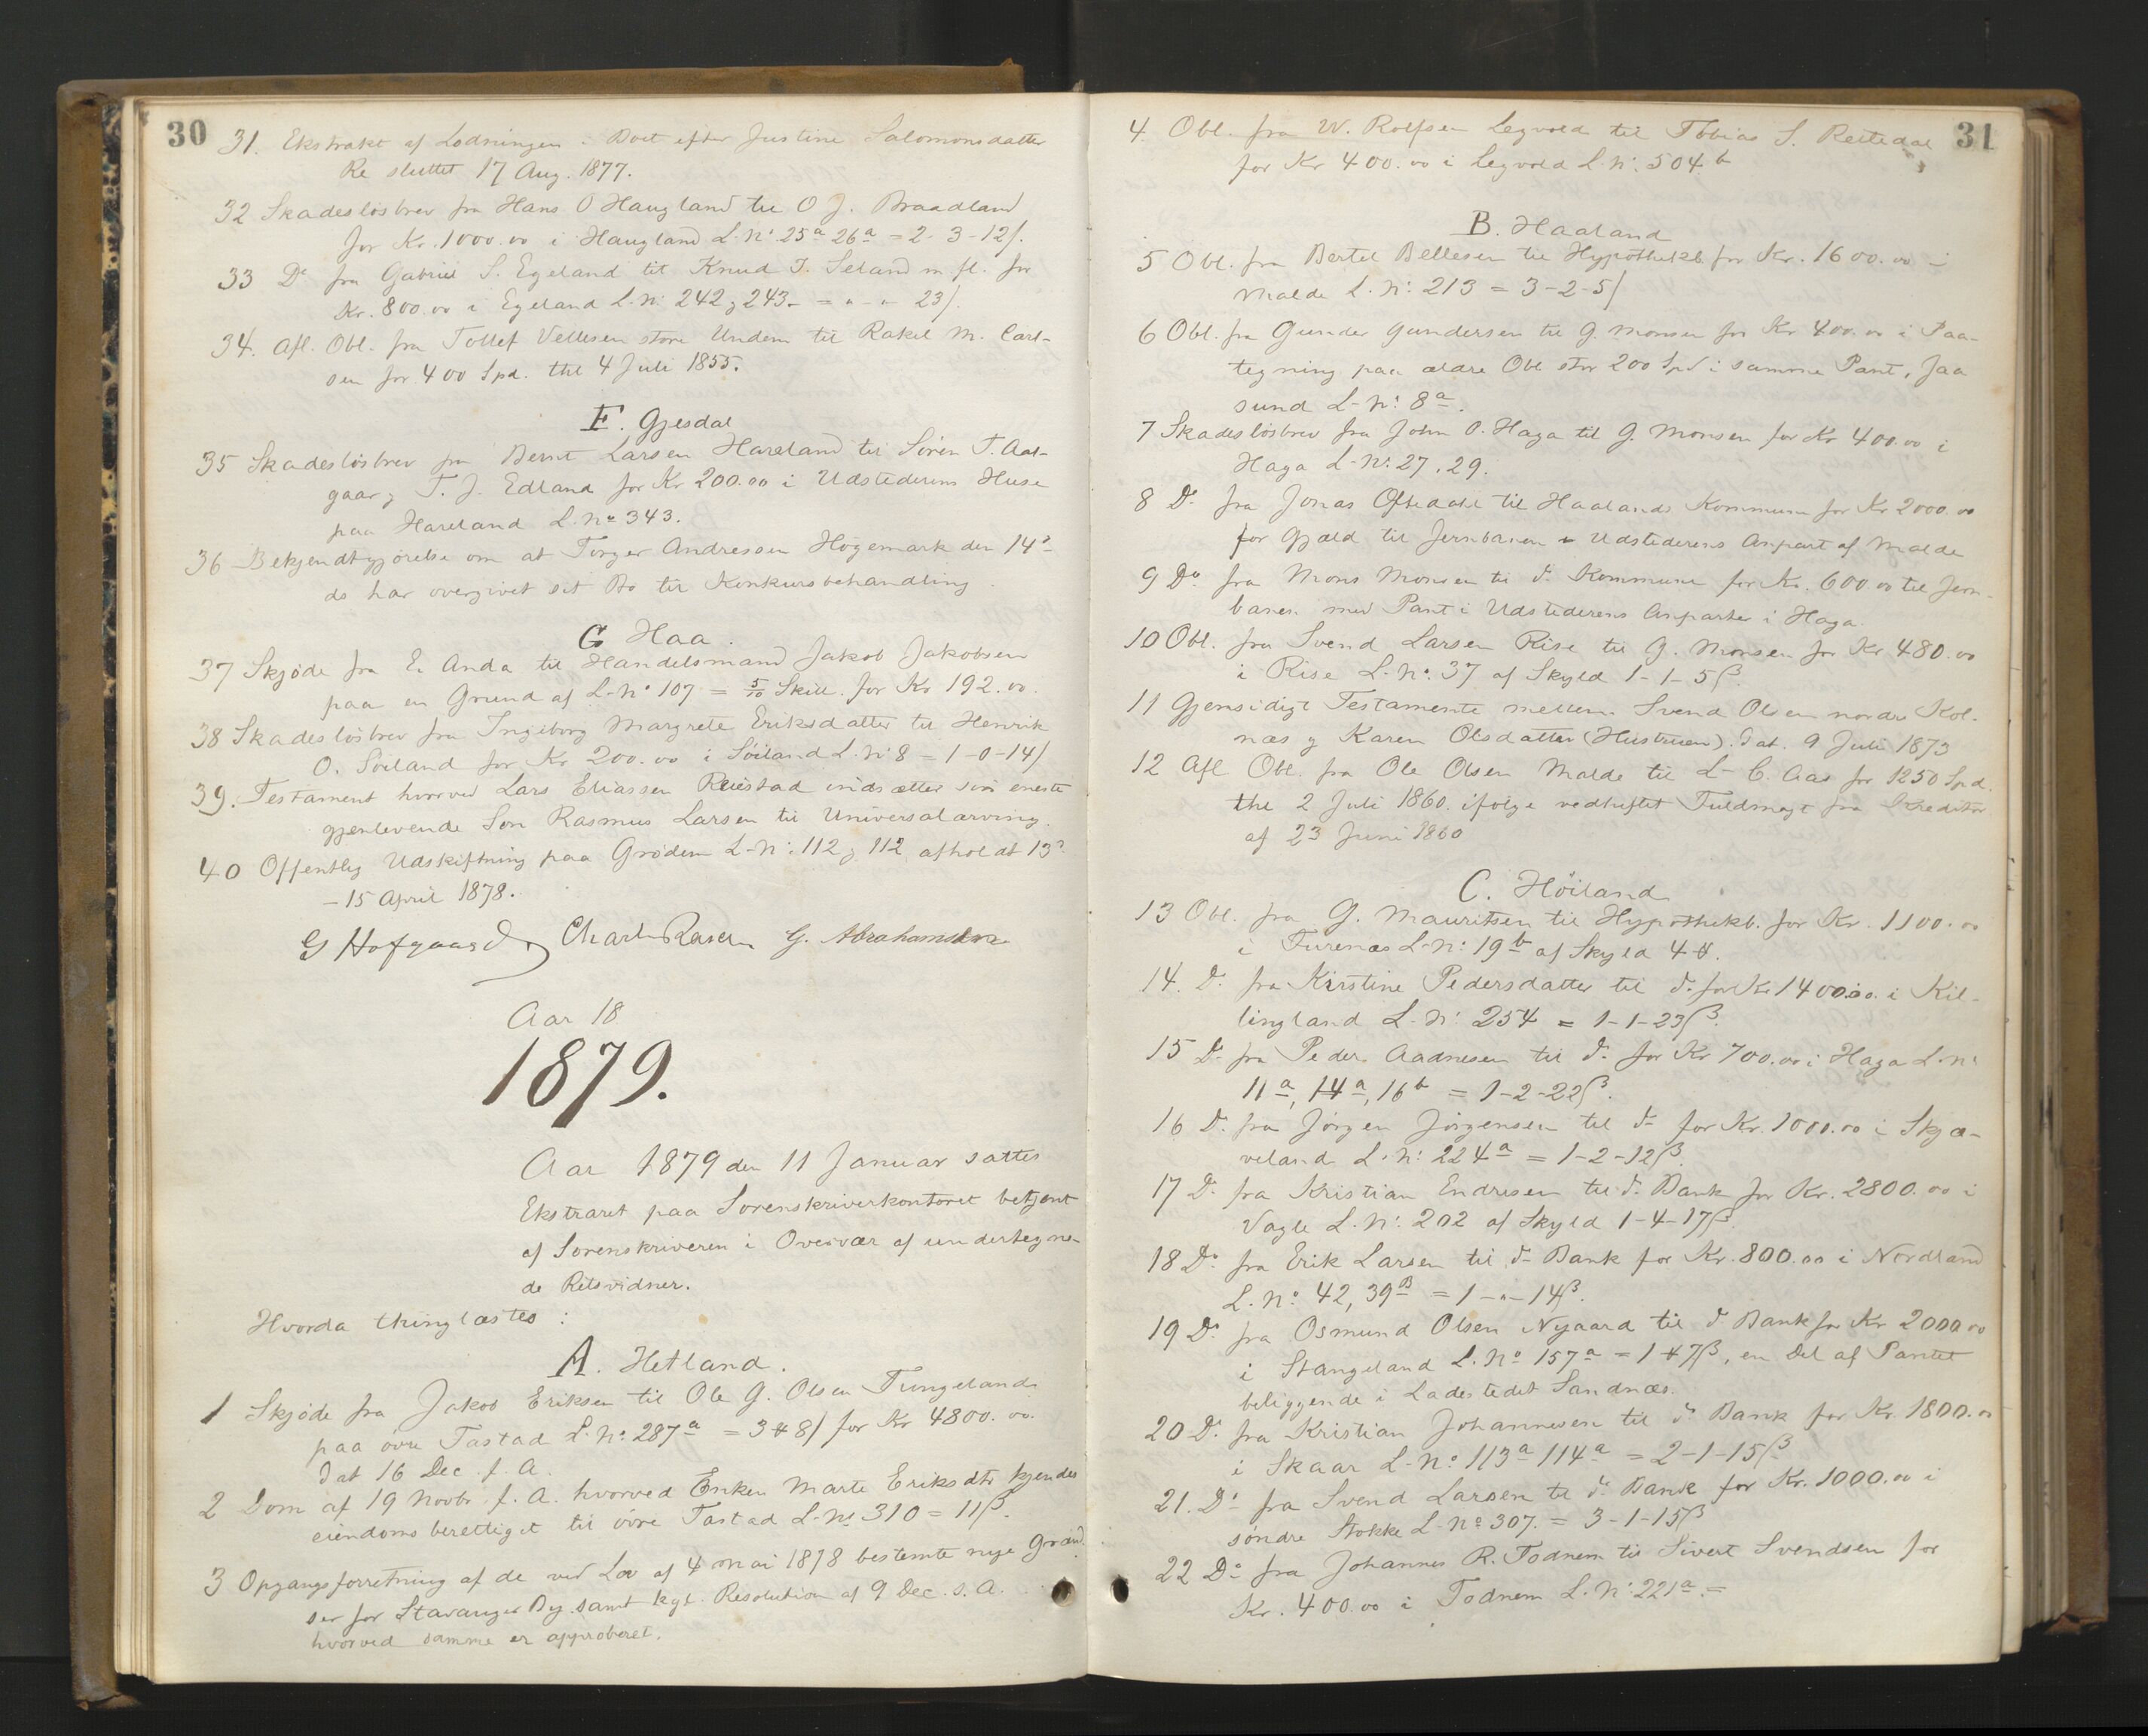 30
31. Ekstrakt af Lodningen i Boet efter Justine Salomonsdatter
Re sluttet 17 Aug. 1877.
32 Skadeslösbrev fra Hans O Haugland til O J. Braadland
for Kr. 1000.00 i Haugland L.No 25a 26a = 2-3-12/.
33 Do fra Gabriel S. Egeland til Knud T. Seland m.fl. for
Kr. 800.00 i Egeland L.No 242 og 243 = " - " 23/.
34. Afl. Obl. fra Tollef Vellesen store Undem til Rakel M. Carl-
sen for 400 Spd. thl 4 Juli 1855.
F. Gjesdal
35 Skadeslösbrev fra Bernt Larsen Hareland til Sören T. Aal-
gaar og T. J. Edland for Kr 200.00 i Udstederens Huse
paa Hareland L.No 343.
36 Bekjendtgjörelse om at Torger Andressen Högemark den 14de
ds har overgivet sit Bo til Konkursbehandling.
G Haa.
37 Skjöde fra E. Anda til Handelsmand Jakob Jakobsen
paa en Grund af L-No 107 = 5/10 Skill. for Kr 192.00.
38 Skadeslösbrev fra Ingeborg Margrete Eriksdatter til Henrik
O. Söiland for Kr 200.00 i Söiland L.No 8 = 1-0-14/
39. Testament hvorved Lars Eliassen Reiestad indsætter sin eneste
gjenlevende Sön Rasmus Larsen til Universalarving.
40 Offentlig Udskiftning paa Grödem L-No: 112 og 112 afholdt 13de
- 15 April 1878.
G Hofgaard, G. Abrahamsen
Aar 18
1879.
Aar 1879 den 11 Januar sattes
Ekstraret paa Sorenskriverkontoret betjent
af Sorenskriveren i Overvær af undertegne-
de Retsvidner.
Hvorda thinglæstes :
A. Hetland.
1 Skjöde fra Jakob Eriksen til Ole G. Olsen Tungeland
paa övre Tastad L.No: 287a = 3 # 8/ for Kr 4800.00.
Dat 16 Dec. f. A.
2 Dom af 19 Novbr. f. A. hvorved Enken Marte Eriksdtr kjendes
eiendomsberettiget til övre Tastad L-No 310 = 11β.
3 Opgangsforretning af de ved Lov af 4 Mai 1878 bestemte nye Grænd-
ser for Stavanger By samt kgl. Resolution af 9 Dec. s. A.
hvorved samme er approberet.
31
4. Obl. fra W. Rolfsen Legvold til Tobias S. Rettedal
for Kr 400.00 i Legvold L.No: 504b
B. Haaland
5 Obl. fra Bertel Bellesen til Hypothekb for Kr. 1600.00 i
Malde L.No: 213 = 3-2-5/
6 Obl. fra Gunder Gundersen til G. Monsen for Kr 400.00 i Paa-
tegning paa ældre Obl stor 200 Spd i samme Pant, Jaa
sund L-No: 8a.
7 Skadeslösbrev fra John O. Haga til G. Monsen for Kr 400.00 i
Haga L-No: 27, 29.
8 Do fra Jonas Oftedahl til Haalands Kommune for Kr 2000.00
for Gjæld til Jernbanen i Udstederens Anpart af Malde
9 Do fra Mons Monsen til do Kommune for Kr. 600.00 til Jern-
banen med Pant i Udstederens Anparter i Haga.
10 Obl. fra Svend Larsen Rise til G. Monsen for Kr 480.00
i Rise L-No: 37 af Skyld 1-1-5β.
11 Gjensidigt Testamente mellem Svend Olsen nordre Kol-
næs og Karen Olsdatter (Hustruen). Dat. 9 Juli 1873
12 Afl Obl. fra Ole Olsen Malde til L. C. Aas for 1250 Spd.
thl 2 Juli 1860. ifölge vedheftet Fuldmagt fra Kreditor
af 23 Juni 1860
C. Höiland
13 Obl. fra G. Mauritsen til Hypothekb. for Kr. 1100.00
i Furenæs L-No: 19b af Skyld 4 #.
14. Do fra Kirstine Pedersdatter til do for Kr 1400.00. i Kil-
lingland L-No: 254 = 1-1-23β.
15 Do fra Peder Aadnesen til do for Kr 700.00 i Haga L.No
11a, 14a, 16b = 1-2-22β.
16 Do. fra Jörgen Jörgensen til do for Kr. 1000.00 i Skjæ-
veland L.No: 224a = 1-2-12β.
17 Do. fra Kristian Endresen til do Bank for Kr. 2800.00 i
Vagle L.No: 202 af Skyld 1-4-17β.
18 Do. fra Erik Larsen til do Bank for Kr. 800.00 i Nordland
L.No: 42, 39B = 1-"-14β.
19 Do. fra Osmund Olsen Nygaard til do Bank for Kr 2000.00
i Stangeland L.No 157a = 1 # 7β, en Del af Pantet
beliggende i Ladestedet Sandnæs.
20 Do. fra Kristian Johannesen til do Bank for Kr. 1800.00
i Skaar L-No: 113a 114a = 2-1-15β
21. Do fra Svend Larsen til do Bank for Kr. 1000.00 i
söndre Stokke L-No 307. = 3-1-15β
22 Do fra Johannes R. Todnem til Sivert Svendsen for
Kr. 400.00 i Todnem L.No: 221a. =